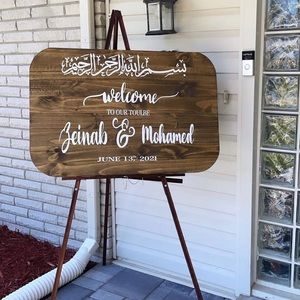 بسم الله الرحمن الرحيم
welcome
TO OUR TOULBE
Zeinab & Mohamed
JUNE 13, 2021